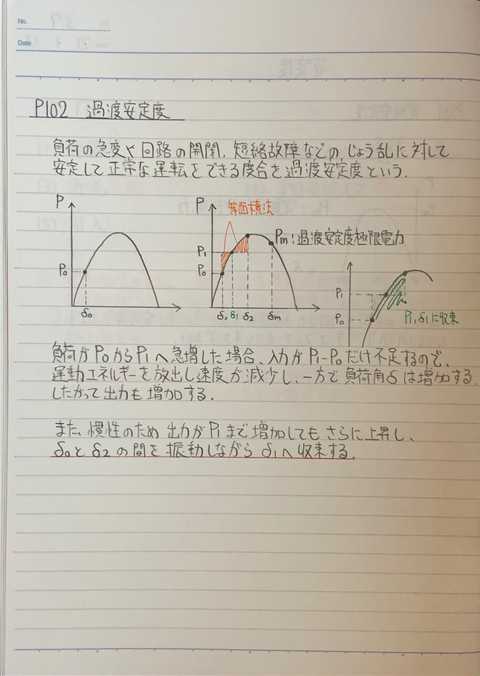 No.
Date
P102 過渡安定度
負荷の急変や回路の開閉、短絡故障などの、じょう乱に対して
安定して正常な運転をできる度合を過渡安定度という.
P
P₀
δ₀
P
等面積法
Pm:過渡安定度極限電力
P₁
P₀
δ₀ δ₁ δ₂ δm
P₁
P₀
P₁,δ₁に収束
負荷がP₀からP₁へ急増した場合、入力がP₁-P₀だけ不足するので、
運動エネルギーを放出し速度が減少し、一方で負荷角δは増加する.
したがって出力も増加する.
また、慣性のため出力がP₁まで増加してもさらに上昇し、
δ₀とδ₂の間を振動しながらδ₁へ収束する.